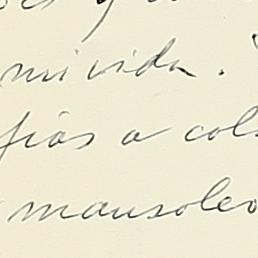 mi vida.
fías a col
mausoleo